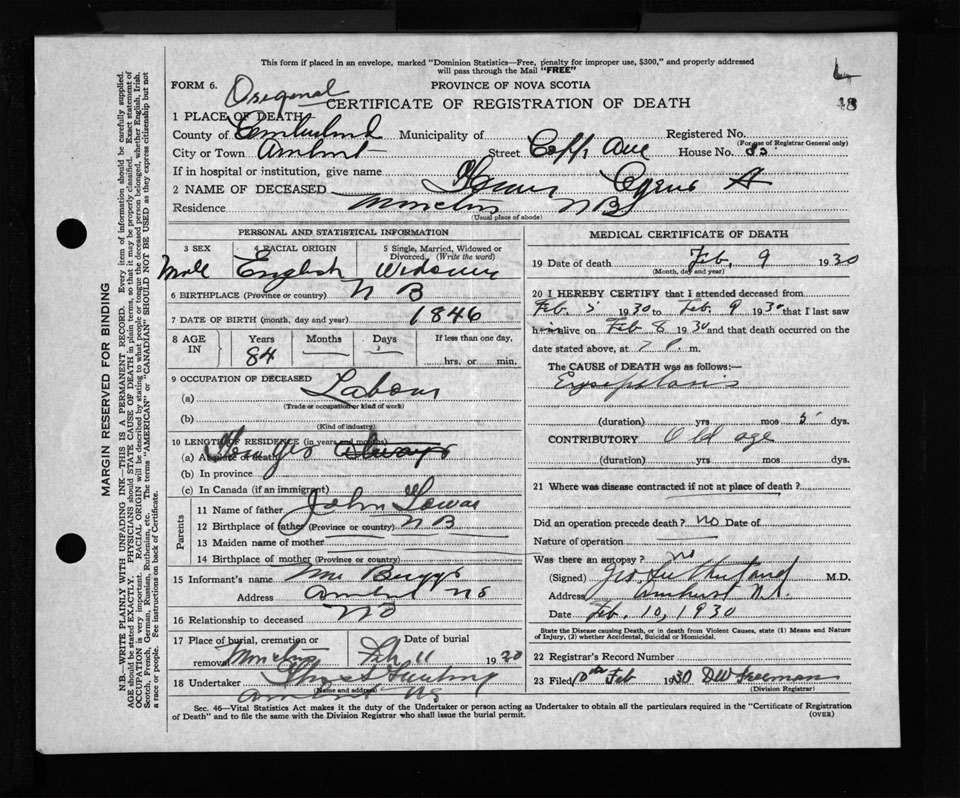 This form if placed in an envelope, marked "Dominion Statistics—Free, penalty for improper use, $300," and properly addressed
will pass through the Mail "FREE"
FORM 6.
PROVINCE OF NOVA SCOTIA
Original
CERTIFICATE OF REGISTRATION OF DEATH
1 PLACE OF DEATH
County of Cumberland Municipality of Registered No.
(For use of Registrar General only)
City or Town Amherst Street Ave House No.
If in hospital or institution, give name
2 NAME OF DECEASED A
Residence Moncton NB
(Usual place of abode)
PERSONAL AND STATISTICAL INFORMATION
3 SEX 4 RACIAL ORIGIN 5 Single, Married, Widowed or Divorced. (Write the word)
Male English Widower
6 BIRTHPLACE (Province or country) N B
7 DATE OF BIRTH (month, day and year) 1846
8 AGE IN Years Months Days If less than one day,
84 hrs. or min.
9 OCCUPATION OF DECEASED
(a) Labour
(Trade or occupation or kind of work)
(b)
(Kind of industry)
10 LENGTH OF RESIDENCE (in years and months)
(a) At place of death
(b) In province
(c) In Canada (if an immigrant)
Parents
11 Name of father John
12 Birthplace of father (Province or country) N B
13 Maiden name of mother
14 Birthplace of mother (Province or country)
15 Informant's name Mrs
Address Amherst NS
16 Relationship to deceased No
17 Place of burial, cremation or removal Moncton Date of burial Feb 11 1930
18 Undertaker
(Name and address)
Amherst NS
MEDICAL CERTIFICATE OF DEATH
19 Date of death Feb. 9 1930
(Month, day and year)
20 I HEREBY CERTIFY that I attended deceased from
Feb. 5 1930 to Feb. 9 1930 that I last saw
him alive on Feb 8 1930 and that death occurred on
date stated above, at 7 P. m.
The CAUSE of DEATH was as follows:—
Erysipelas
(duration) yrs mos 5 dys.
CONTRIBUTORY Old age
(duration) yrs mos dys.
21 Where was disease contracted if not at place of death?
Did an operation precede death? no Date of
Nature of operation
Was there an autopsy? no
(Signed) Geo Sutherland M.D.
Address Amherst N.S.
Date Feb. 10, 1930
State the Disease causing Death, or in death from Violent Causes, state (1) Means and Nature of Injury, (2) whether Accidental, Suicidal or Homicidal.
22 Registrar's Record Number
23 Filed 10th Feb 1930
(Division Registrar)
Sec. 46—Vital Statistics Act makes it the duty of the Undertaker or person acting as Undertaker to obtain all the particulars required in the "Certificate of Registration
of Death" and to file the same with the Division Registrar who shall issue the burial permit.
(OVER)
MARGIN RESERVED FOR BINDING
N.B.—WRITE PLAINLY WITH UNFADING INK—THIS IS A PERMANENT RECORD. Every item of information should be carefully supplied.
AGE should be stated EXACTLY. PHYSICIANS should STATE CAUSE OF DEATH in plain terms, so that it may be properly classified. Exact statement of
OCCUPATION is very important. RACIAL ORIGIN will be described by stating to what people or tongue the deceased person belonged, whether English, Irish,
Scotch, French, German, Russian, Ruthenian, etc. The terms "AMERICAN" or "CANADIAN" SHOULD NOT BE USED as they express citizenship but not
a race or people. See instructions on back of Certificate.